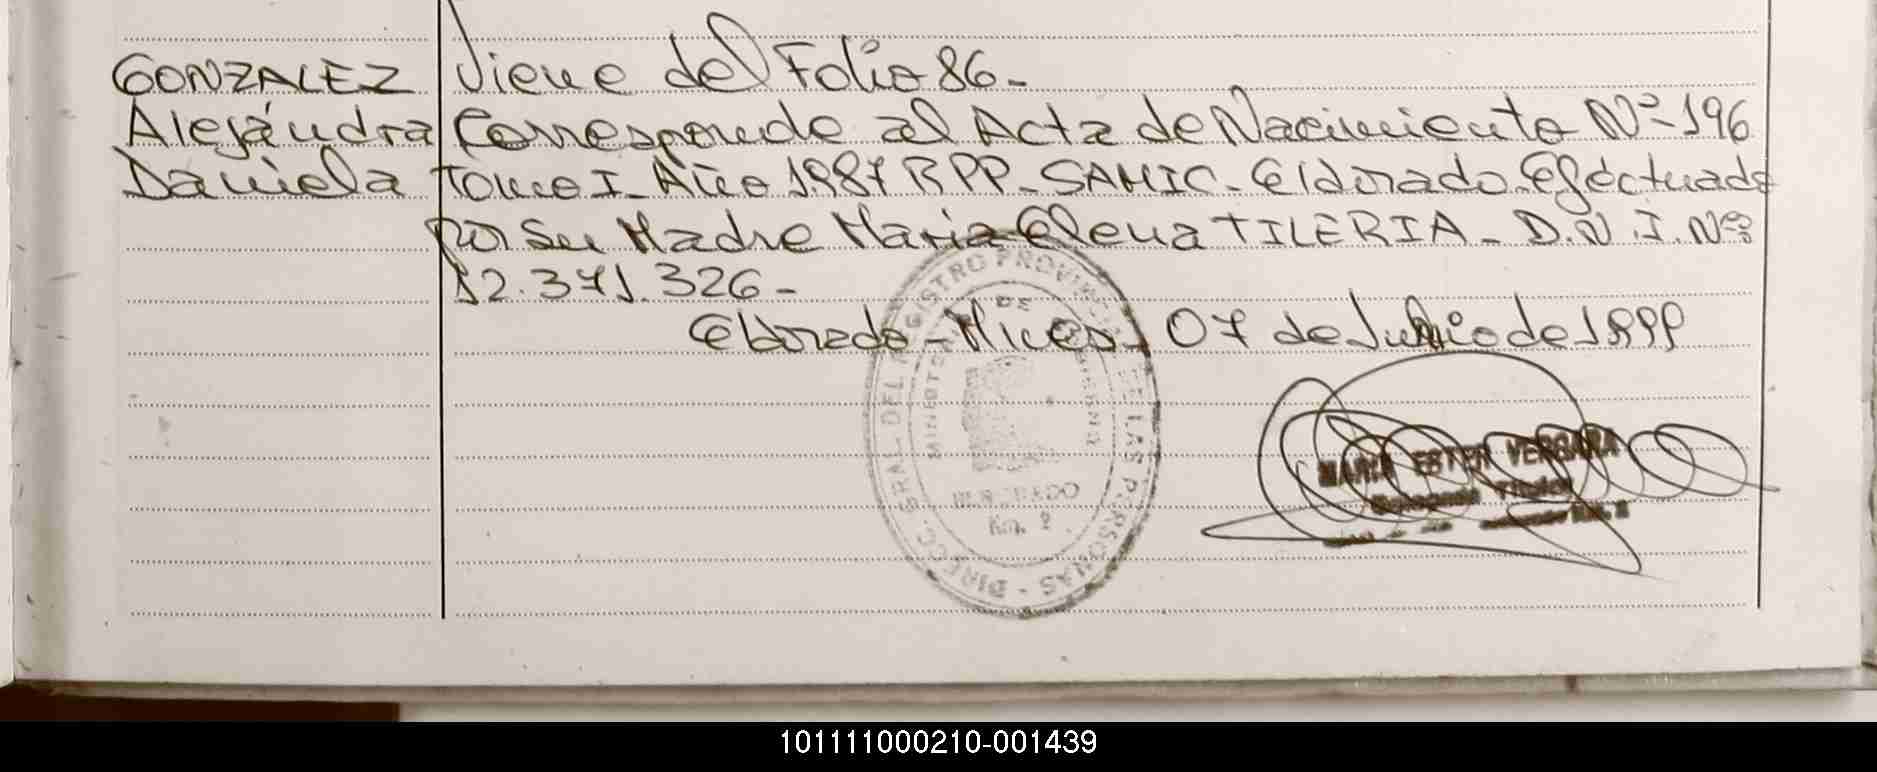 GONZALEZ
Alejándra
Daniela
Viene del Folio 86-
Corresponde al Acta de Nacimiento Nº 196
Tomo I- Año 1.987 RPP- SAMIC- Eldorado- Efectuada
por su Madre Maria Elena TILERIA- D.N.I. Nº:
12.371.326-
Eldorado-Mnes, 07 de Junio de 1999
DIRECC. GRAL DEL REGISTRO PROVINCIAL DE LAS PERSONAS -
MINISTERIO DE GOBIERNO
ELDORADO
Km. 2
MARIA ESTER VERGARA
Delegada Titular
101111000210-001439